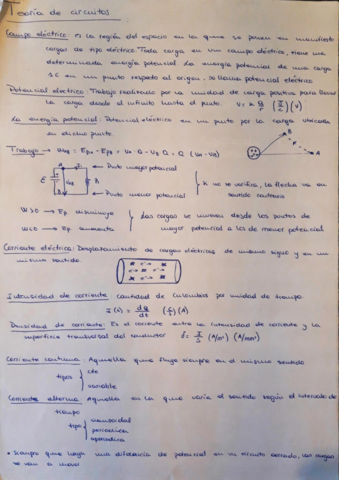 Teoría de circuitos
Campo eléctrico: es la región del espacio en la que se ponen en manifiesto
cargas de tipo eléctrico. Toda carga en un campo eléctrico, tiene una
determinada energía potencial. La energía potencial de una carga
1C en un punto respecto al origen, se llama potencial eléctrico
Potencial eléctrico: Trabajo realizado por la unidad de carga positiva para llevar
la carga desde el infinito hasta el punto. V = K Q/r (J/C) (V)
La energía potencial: Potencial eléctrico en un punto por la carga ubicada
en dicho punto.
Trabajo → = Q (VA - VB)
B
A
Punto mayor potencial
Punto menor potencial
E
R
no se verifica, la flecha va en
sentido contrario
W>0 → Ep disminuye
W<0 → Ep aumenta
Las cargas se mueven desde los puntos de
mayor potencial a los de menor potencial
Corriente eléctrica: Desplazamiento de cargas eléctricas de mismo signo y en un
mismo sentido.
Intensidad de corriente: cantidad de culombios por unidad de tiempo
i(t) = dq/dt (C/s) (A)
Densidad de corriente: Es el cociente entre la intensidad de corriente y la
superficie transversal del conductor δ = I/S (A/m²) (A/mm²)
Corriente continua: Aquella que fluye siempre en el mismo sentido
tipos cte
variable
Corriente alterna: Aquella en la que varía el sentido según el intervalo de
tiempo
tipo senoidal
periódica
aperiódica
* siempre que haya una diferencia de potencial en un circuito cerrado, las cargas
se van a mover